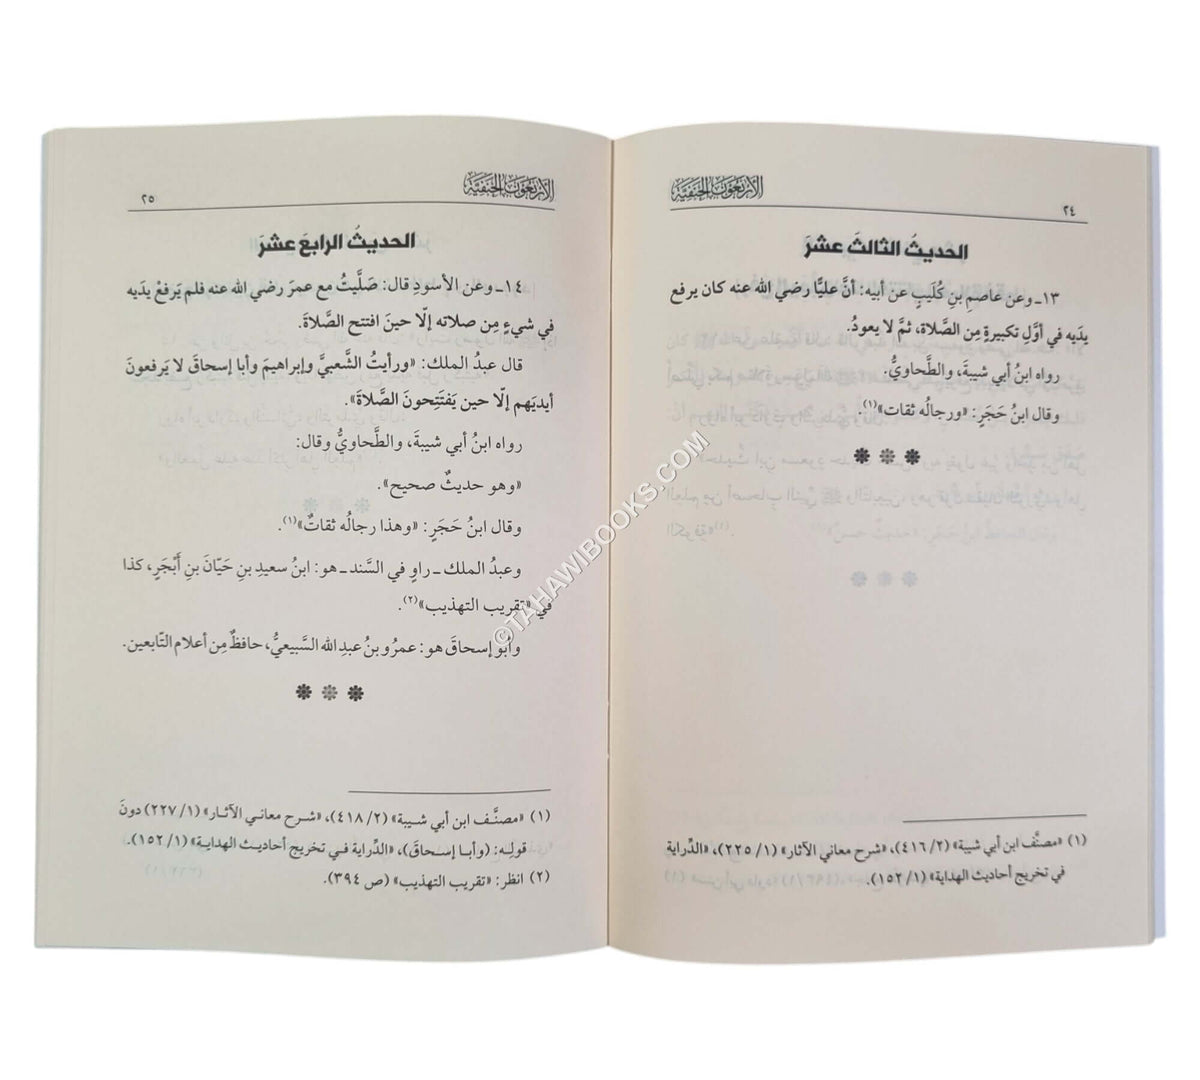 الأربعون الحنفية
٢٤
الحديثُ الثالثَ عشرَ
١٣ـ وعن عاصمِ بنِ كُلَيبٍ عن أبيه: أنَّ عليًّا رضي الله عنه كان يرفع
يدَيه في أوَّلِ تكبيرةٍ مِن الصَّلاة، ثمَّ لا يعودُ.
رواه ابنُ أبي شيبةَ، والطَّحاويُّ.
وقال ابنُ حَجَرٍ: «ورجالُه ثقات»(١).
(١) «مصنَّف ابن أبي شيبة» (٢/ ٤١٦)، «شرح معاني الآثار» (١/ ٢٢٥)، «الدِّراية
في تخريج أحاديث الهداية» (١/ ١٥٢).
الأربعون الحنفية
٢٥
الحديثُ الرابعَ عشرَ
١٤ـ وعن الأسودِ قال: صَلَّيتُ مع عمرَ رضي الله عنه فلم يَرفعْ يدَيه
في شيءٍ مِن صلاته إلّا حينَ افتتح الصَّلاةَ.
قال عبدُ الملك: «ورأيتُ الشَّعبيَّ وإبراهيمَ وأبا إسحاقَ لا يَرفعونَ
أيديَهم إلّا حين يَفتَتِحونَ الصَّلاةَ».
رواه ابنُ أبي شيبةَ، والطَّحاويُّ وقال:
«وهو حديثٌ صحيح».
وقال ابنُ حَجَرٍ: «وهذا رجالُه ثقاتٌ»(١).
وعبدُ الملك ـ راوٍ في السَّند ـ هو: ابنُ سعيدِ بنِ حَيّانَ بنِ أَبْجَرٍ، كذا
في «تقريب التهذيب»(٢).
وأبو إسحاقَ هو: عمرُو بنُ عبدِ الله السَّبيعيُّ، حافظٌ مِن أعلام التّابعين.
(١) «مصنَّف ابن أبي شيبة» (٢/ ٤١٨)، «شرح معاني الآثار» (١/ ٢٢٧) دونَ
قولِه: (وأبا إسحاقَ)، «الدِّراية في تخريج أحاديث الهداية» (١/ ١٥٢).
(٢) انظر: «تقريب التهذيب» (ص ٣٩٤).
©TAHAWIBOOKS.COM